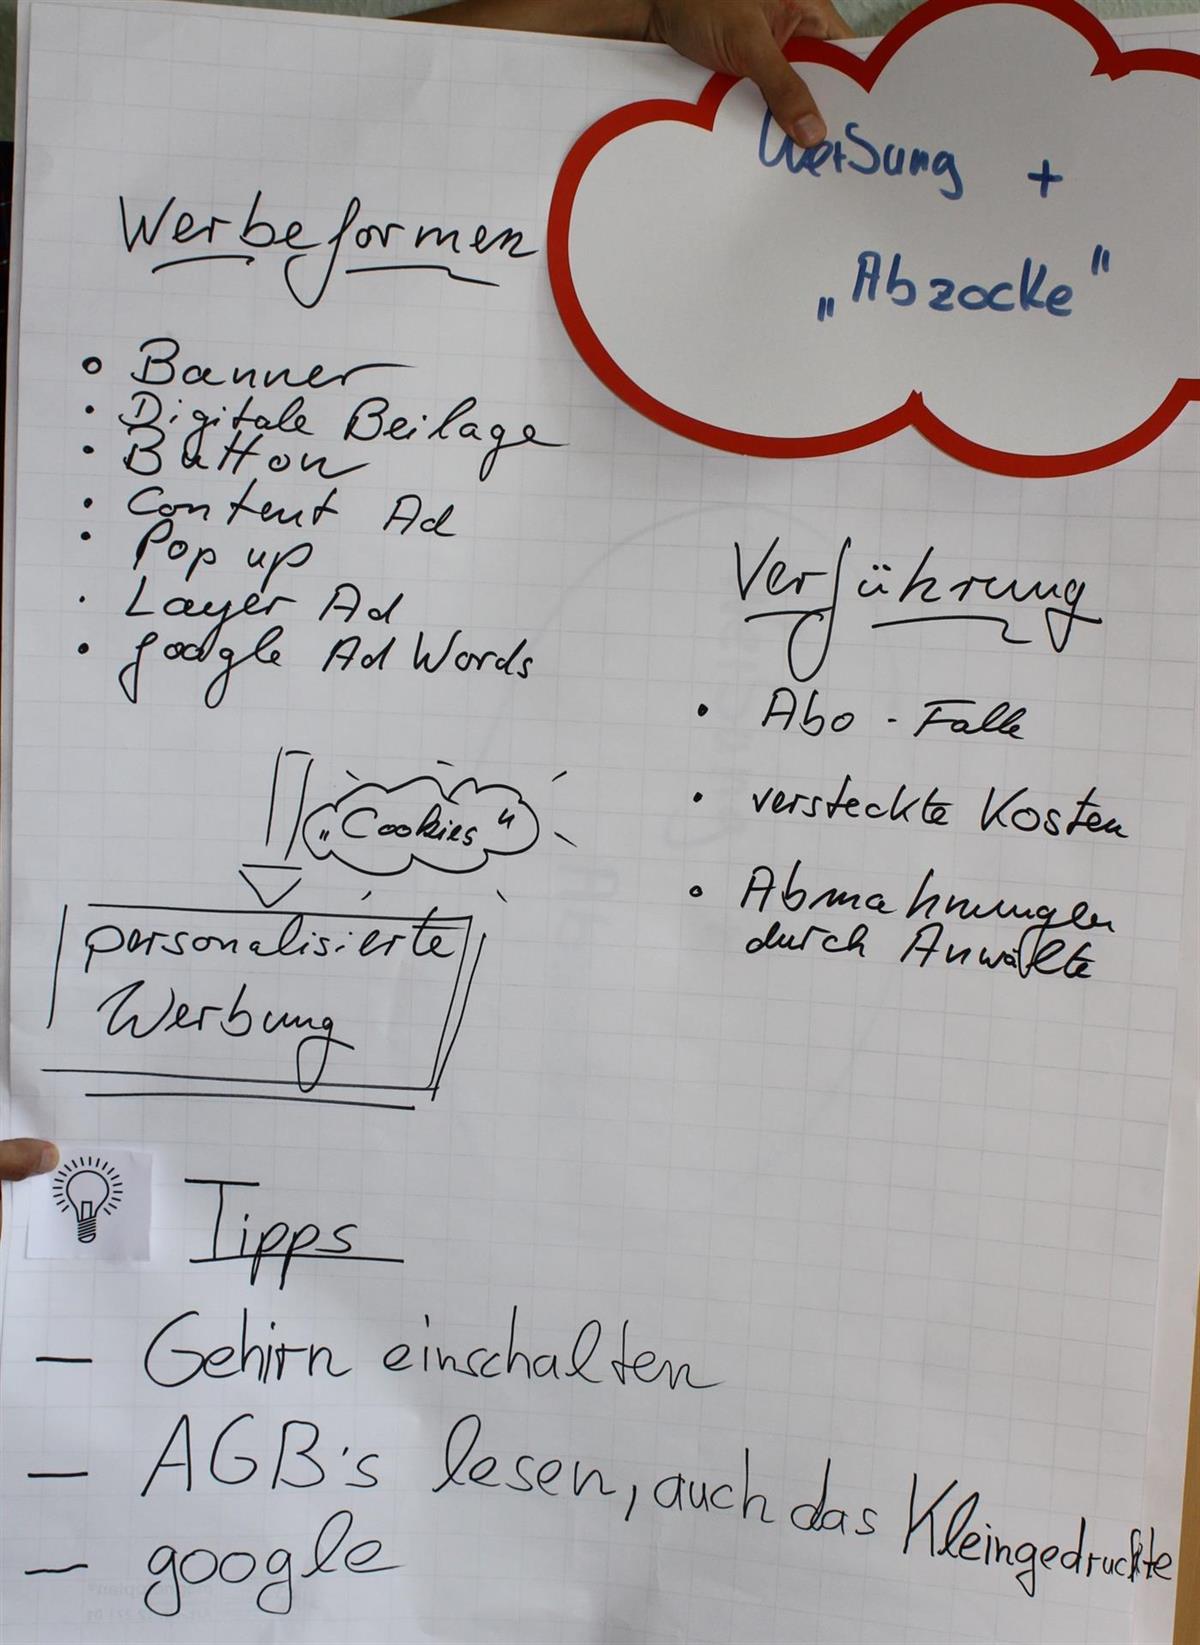 Werbung +
„Abzocke"
Werbeformen
• Banner
• Digitale Beilage
• Button
• Content Ad
• Pop up
• Layer Ad
• google AdWords
„Cookies"
personalisierte
Werbung
Verführung
• Abo - Falle
• versteckte Kosten
• Abmahnungen
durch Anwälte
Tipps
— Gehirn einschalten
— AGB's lesen, auch das Kleingedruckte
— google